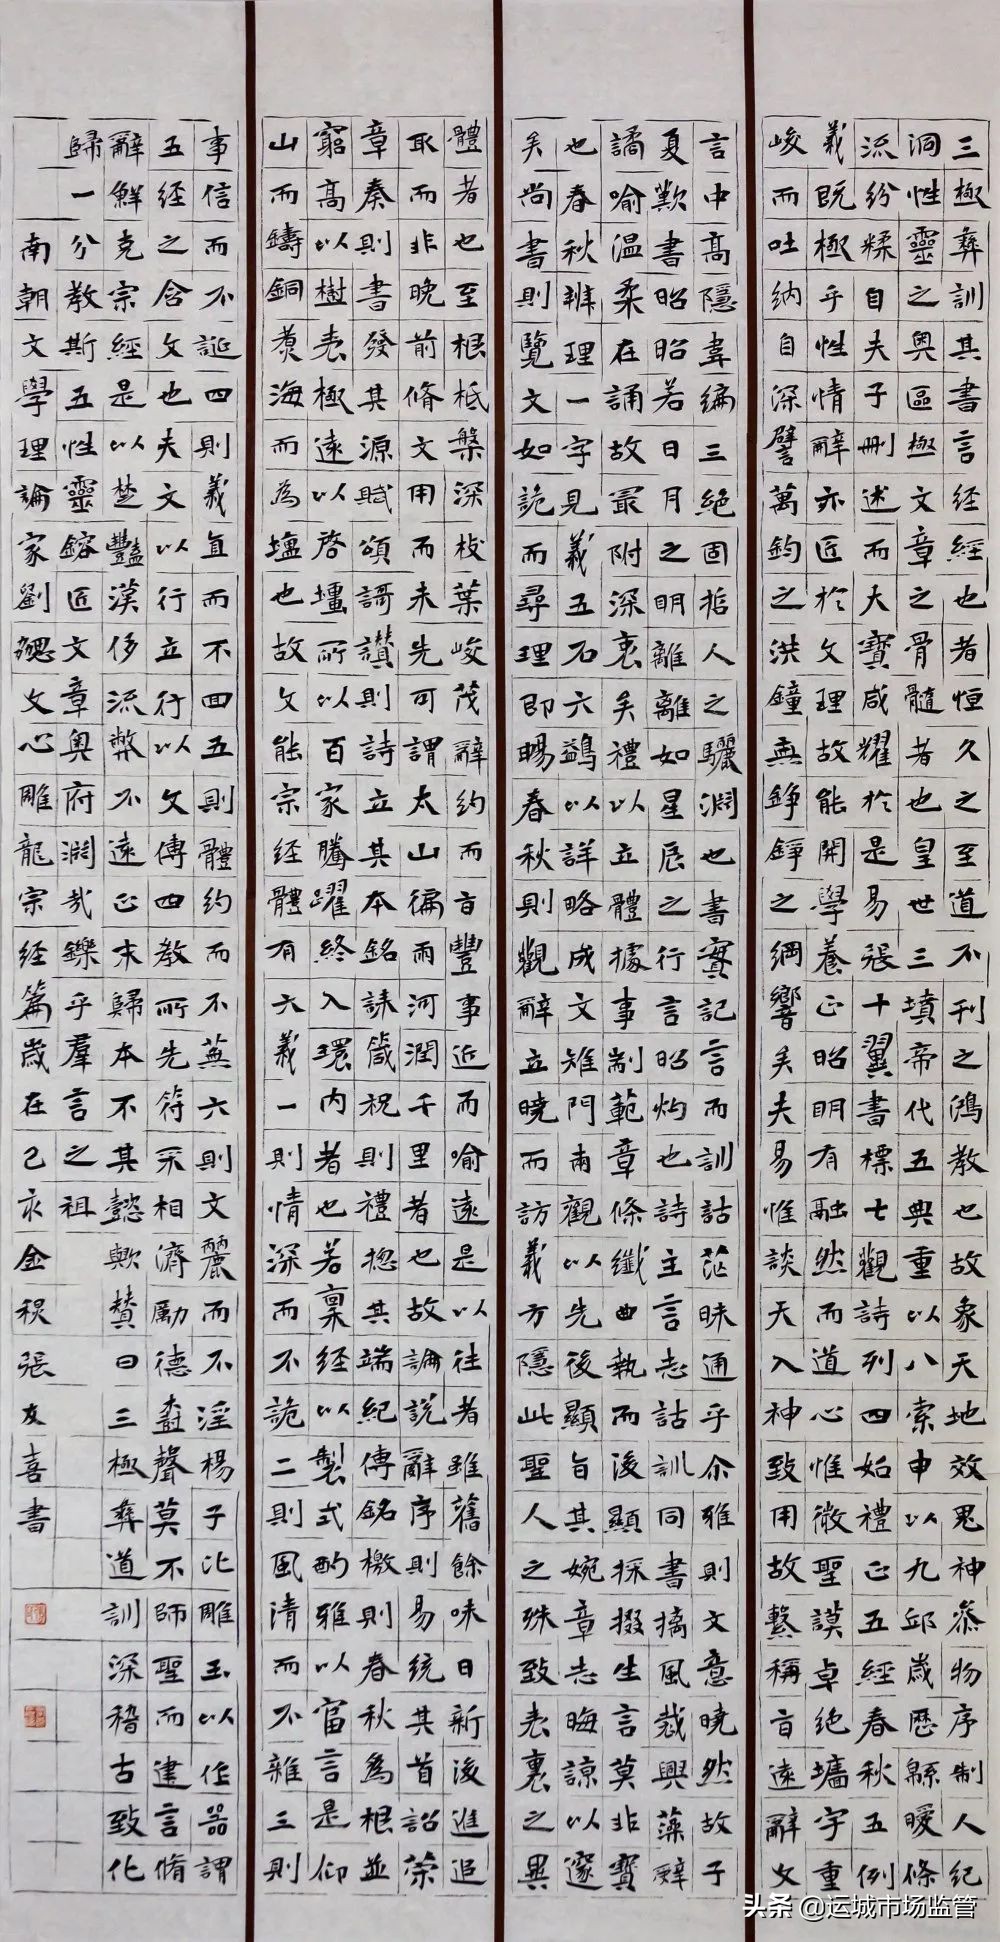 三極彝訓其書言经經也者恒久之至道不刊之鴻教也故象天地效鬼神叅物序制人紀
洞性靈之奥區極文章之骨髓者也皇世三墳帝代五典重以八索申以九邱歲歷緜曖條
流紛糅自夫子刪述而大寶咸耀於是易張十翼書標七觀詩列四始禮正五經春秋五例
義既極乎性情辭亦匠於文理故能開學養正昭明有融然而道心惟微聖謨卓絶墻宇重
峻而吐納自深譬萬鈞之洪鐘無錚錚之綱響矣夫易惟談天入神致用故繫稱旨遠辭文
言中高隱韋編三絶固哲人之驪淵也書實記言而訓詁茫昧通乎尒雅則文意曉然故子
夏歎書昭昭若日月之明離離如星辰之行言昭灼也詩主言志詁訓同書摛風裁興藻辭
譎喻温柔在誦故最附深衷矣禮以立體據事制範章條纖曲執而後顯採掇生言莫非寶
也春秋辨理一字見義五石六鷁以詳略成文雉門兩觀以先後顯旨其婉章志晦諒以邃
矣尚書則覽文如詭而尋理即暢春秋則觀辭立曉而訪義方隱此聖人之殊致表裏之異
體者也至根柢槃深枝葉峻茂辭約而旨豐事近而喻遠是以往者雖舊餘味日新後進追
取而非晚前脩文用而未先可謂太山徧雨河潤千里者也故論説辭序則易統其首詔榮
章奏則書發其源賦頌謌讚則詩立其本銘誄箴祝則禮揔其端紀傳銘檄則春秋為根並
窮高以樹表極遠以啓壃所以百家騰躍終入環内者也若稟经以製式酌雅以富言是仰
山而鑄銅煑海而為塩也故文能宗经體有六義一則情深而不詭二則風清而不雜三則
事信而不誕四則義直而不回五則體約而不蕪六則文麗而不淫楊子比雕玉以作器謂
五经之含文也夫文以行立行以文傳四教所先符采相濟勵德樹聲莫不師聖而建言脩
辭鮮克宗經是以楚豔漢侈流弊不遠正末歸本不其懿歟贊曰三極彝道訓深稽古致化
歸一分教斯五性靈鎔匠文章奥府淵哉鑠乎羣言之祖
南朝文學理論家劉勰文心雕龍宗经篇歲在己亥金秋張友喜書
头条 @运城市场监管